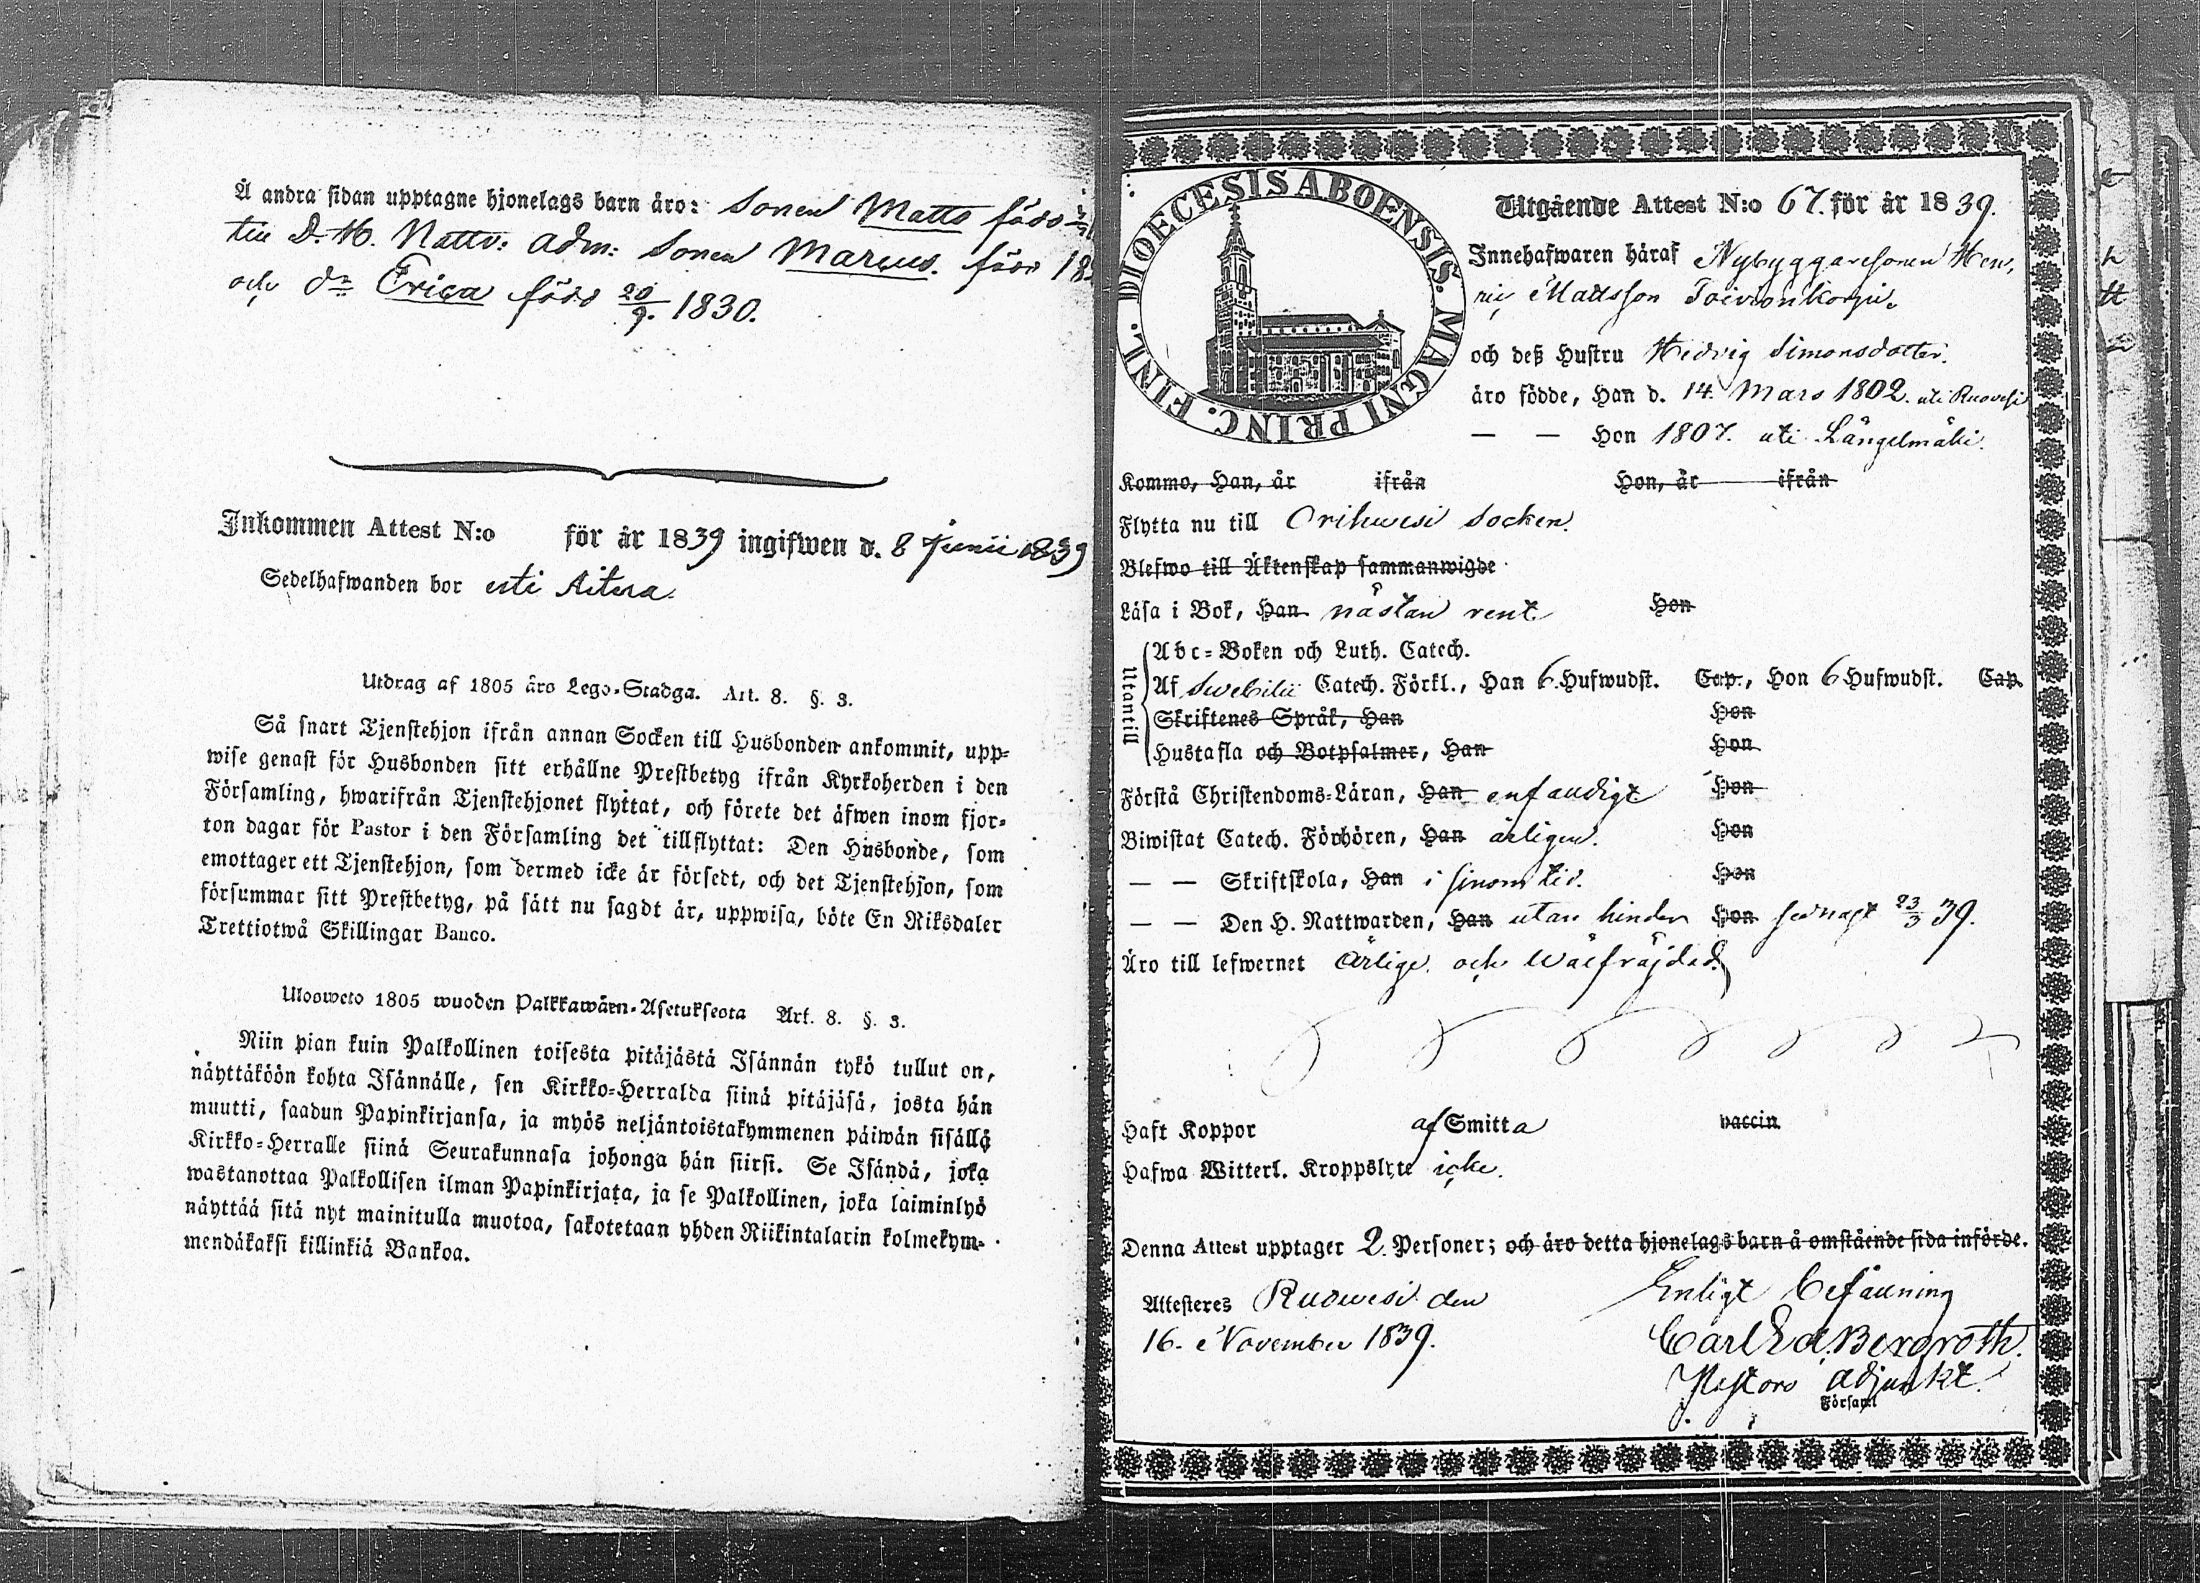 Å andra sidan upptagne hjonelags barn äro: Sonen Matts född
till D. H. Nattv: adm: Sonen Marcus. född 18
och dr Erica född 20/9. 1830.
Inkommen Attest N:o för år 1839 ingifwen d. 8 Junii 1839
Sedelhafwanden bor uti
Utdrag af 1805 års Lego-Stadga. Art. 8. §. 3.
Så snart Tjenstehjon ifrån annan Socken till Husbonden ankommit, upp-
wise genast för Husbonden sitt erhållne Prestbetyg ifrån Kyrkoherden i den
Församling, hwarifrån Tjenstehjonet flyttat, och förete det äfwen inom fjor-
ton dagar för Pastor i den Församling det tillflyttat: Den Husbonde, som
emottager ett Tjenstehjon, som dermed icke är försedt, och det Tjenstehjon, som
försummar sitt Prestbetyg, på sätt nu sagdt är, uppwisa, böte En Riksdaler
Trettiotwå Skillingar Banco.
Ulosweto 1805 wuoden Palkkawäen-Asetuksesta Art. 8. §. 3.
Niin pian kuin Palkollinen toisesta pitäjästä Isännän tykö tullut on,
näyttäköön kohta Isännälle, sen Kirkko-Herralda siinä pitäjäsä, josta hän
muutti, saadun Papinkirjansa, ja myös neljäntoistakymmenen päiwän sisällä
Kirkko-Herralle siinä Seurakunnasa johonga hän siirsi. Se Isändä, joka
wastanottaa Palkollisen ilman Papinkirjata, ja se Palkollinen, joka laiminlyö
näyttää sitä nyt mainitulla muotoa, sakotetaan yhden Riikintalarin kolmekym-
mendäkaksi killinkiä Bankoa.
DIOECESIS ABOENSIS. MAGNI PRINC. FINL.
Utgående Attest N:o 67. för år 1839.
Innehafwaren häraf Nybyggaresonen Hen,
ric Mattsson Toivionkorpi
och deß Hustru Hedvig Simonsdotter.
äro födde, Han d. 14. Mars 1802. uti Ruovesi
— — Hon 1807. uti Längelmäki.
Kommo, Han, år ifrån Hon, år ifrån
Flytta nu till Orihwesi Socken.
Blefwo till Äktenskap sammanwigde
Läsa i Bok, Han nästan rent Hon
Utantill
Abc-Boken och Luth. Catech.
Af Swebilii Catech. Förkl., Han 6. Hufwudst. Cap., Hon 6 Hufwudst. Cap.
Skriftenes Språk, Han Hon
Hustafla och Botpsalmer, Han Hon
Förstå Christendoms-Läran, Han enfaudigt Hon
Biwistat Catech. Förhören, Han årligen. Hon
— — Skriftskola, Han i sinom tid. Hon
— — Den H. Nattwarden, Han utan hinder Hon sednast 23/3 39.
Äro till lefwernet ärlige och wälfräjdad.
Haft Koppor af Smitta vaccin
Hafwa Witterl. Kroppslyte icke.
Denna Attest upptager 2. Personer; och äro detta hjonelags barn å omstående sida införde.
Attesteres Ruovesi den
16. November 1839.
Enligt befallning
Carl Ed. Bergroth.
Pastors adjunkt.
Församl